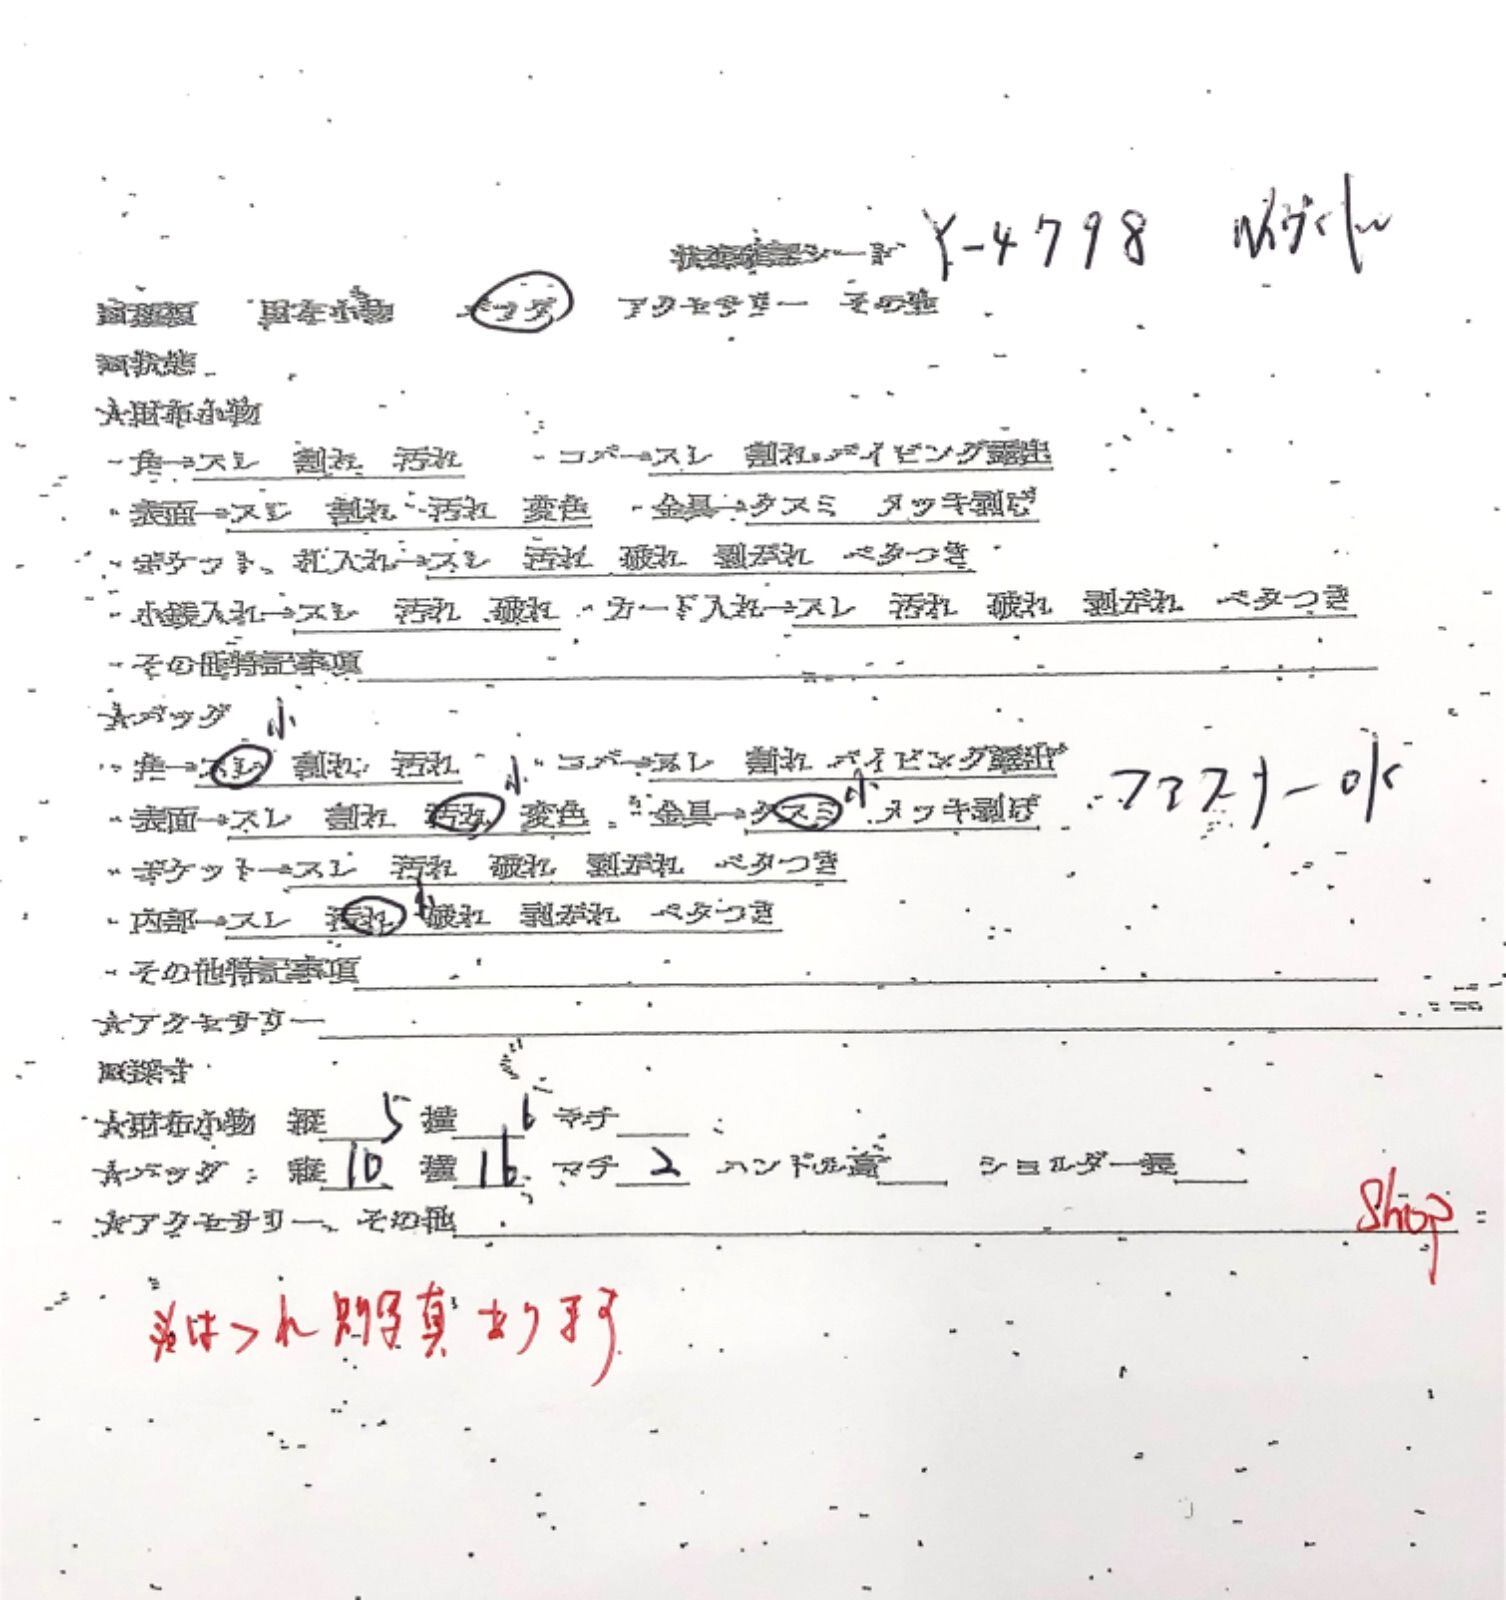 状態確認シート Y-4798
財布小物 バッグ アクセサリー その他
状態
★財布小物
・角→スレ 割れ 汚れ ・コバ→スレ 割れ パイピング露出
・表面→スレ 割れ 汚れ 変色 ・金具→クスミ メッキ剥げ
・ポケット、札入れ→スレ 汚れ 破れ 剥がれ ベタつき
・小銭入れ→スレ 汚れ 破れ ・カード入れ→スレ 汚れ 破れ 剥がれ ベタつき
・その他特記事項
★バッグ 小
・角→スレ 割れ 汚れ 小 ・コバ→スレ 割れ パイピング露出
・表面→スレ 割れ 汚れ 変色 ・金具→クスミ 小 メッキ剥げ ファスナーOK
・ポケット→スレ 汚れ 破れ 剥がれ ベタつき
・内部→スレ 汚れ 小 破れ 剥がれ ベタつき
・その他特記事項
★アクセサリー
採寸
★財布小物 縦 5 横 6 マチ
★バッグ 縦 10 横 16 マチ 2 ハンドル高 ショルダー長
★アクセサリー、その他 Shop
ほつれ 別写真あります